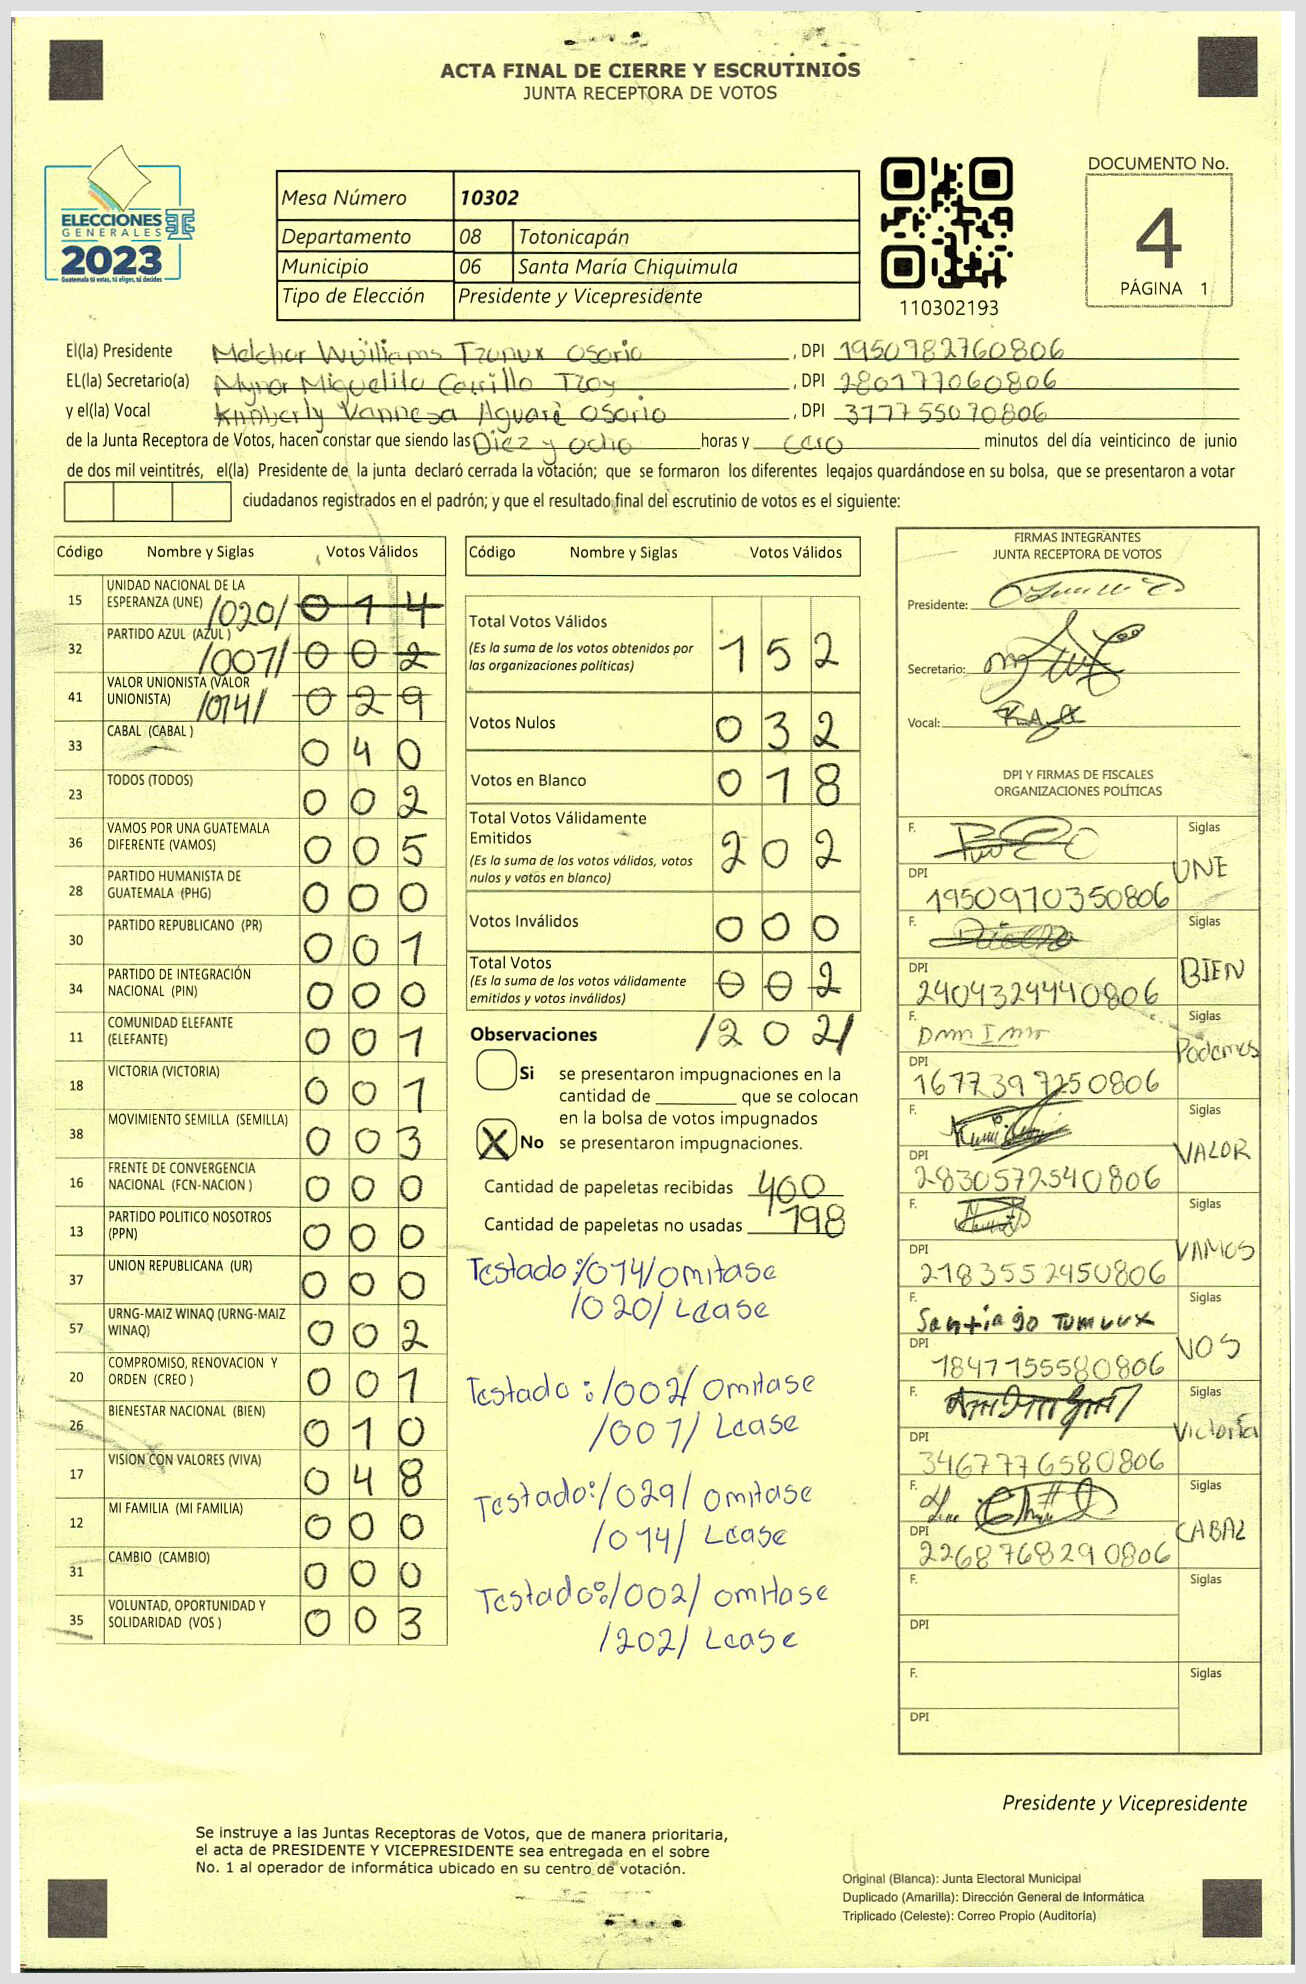 ACTA FINAL DE CIERRE Y ESCRUTINIOS
JUNTA RECEPTORA DE VOTOS
ELECCIONES
GENERALES
2023
Guatemala tú votas, tú eliges, tú decides
Mesa Número 10302
Departamento 08 Totonicapán
Municipio 06 Santa María Chiquimula
Tipo de Elección Presidente y Vicepresidente
110302193
DOCUMENTO No.
4
PÁGINA 1
El(la) Presidente Melchor Wuilliams Tzunux Osorio, DPI 1950982760806
EL(la) Secretario(a) Mynor Miguelito Carrillo Tzoy, DPI 280177060806
y el(la) Vocal Kimberly Vannesa Aguaré Osorio, DPI 377755070806
de la Junta Receptora de Votos, hacen constar que siendo las Diez y ocho horas y cero minutos del día veinticinco de junio
de dos mil veintitrés, el(la) Presidente de la junta declaró cerrada la votación; que se formaron los diferentes legajos quardándose en su bolsa, que se presentaron a votar
ciudadanos registrados en el padrón; y que el resultado final del escrutinio de votos es el siguiente:
Código Nombre y Siglas Votos Válidos
15 UNIDAD NACIONAL DE LA ESPERANZA (UNE) /020/ 014
32 PARTIDO AZUL (AZUL ) /007/ 002
41 VALOR UNIONISTA (VALOR UNIONISTA) /014/ 029
33 CABAL (CABAL ) 040
23 TODOS (TODOS) 002
36 VAMOS POR UNA GUATEMALA DIFERENTE (VAMOS) 005
28 PARTIDO HUMANISTA DE GUATEMALA (PHG) 000
30 PARTIDO REPUBLICANO (PR) 001
34 PARTIDO DE INTEGRACIÓN NACIONAL (PIN) 000
11 COMUNIDAD ELEFANTE (ELEFANTE) 001
18 VICTORIA (VICTORIA) 001
38 MOVIMIENTO SEMILLA (SEMILLA) 003
16 FRENTE DE CONVERGENCIA NACIONAL (FCN-NACION ) 000
13 PARTIDO POLITICO NOSOTROS (PPN) 000
37 UNION REPUBLICANA (UR) 000
57 URNG-MAIZ WINAQ (URNG-MAIZ WINAQ) 002
20 COMPROMISO, RENOVACION Y ORDEN (CREO ) 001
26 BIENESTAR NACIONAL (BIEN) 010
17 VISION CON VALORES (VIVA) 048
12 MI FAMILIA (MI FAMILIA) 000
31 CAMBIO (CAMBIO) 000
35 VOLUNTAD, OPORTUNIDAD Y SOLIDARIDAD (VOS ) 003
Código Nombre y Siglas Votos Válidos
Total Votos Válidos 152
(Es la suma de los votos obtenidos por
las organizaciones políticas)
Votos Nulos 032
Votos en Blanco 018
Total Votos Válidamente
Emitidos 202
(Es la suma de los votos válidos, votos
nulos y votos en blanco)
Votos Inválidos 000
Total Votos 002
(Es la suma de los votos válidamente
emitidos y votos inválidos)
Observaciones /202/
Si se presentaron impugnaciones en la
cantidad de ________ que se colocan
en la bolsa de votos impugnados
X No se presentaron impugnaciones.
Cantidad de papeletas recibidas 400
Cantidad de papeletas no usadas 198
Testado:/014/ omitase
/020/ Lease
Testado:/002/ omitase
/007/ Lease
Testado:/029/ omitase
/014/ Lease
Testado:/002/ omitase
/202/ Lease
FIRMAS INTEGRANTES
JUNTA RECEPTORA DE VOTOS
Presidente:
Secretario:
Vocal:
DPI Y FIRMAS DE FISCALES
ORGANIZACIONES POLÍTICAS
F. Siglas UNE
DPI 1950970350806
F. Siglas BIEN
DPI 2404324440806
F. Siglas Podemos
DPI 1677397250806
F. Siglas VALOR
DPI 2830572540806
F. Siglas VAMOS
DPI 2183552450806
F. Santiago Tumux Siglas VOS
DPI 1847155580806
F. Siglas Victoria
DPI 3467776580806
F. Siglas CABAL
DPI 2268768290806
F. Siglas
DPI
F. Siglas
DPI
Presidente y Vicepresidente
Se instruye a las Juntas Receptoras de Votos, que de manera prioritaria,
el acta de PRESIDENTE Y VICEPRESIDENTE sea entregada en el sobre
No. 1 al operador de informática ubicado en su centro de votación.
Original (Blanca): Junta Electoral Municipal
Duplicado (Amarilla): Dirección General de Informática
Triplicado (Celeste): Correo Propio (Auditoría)